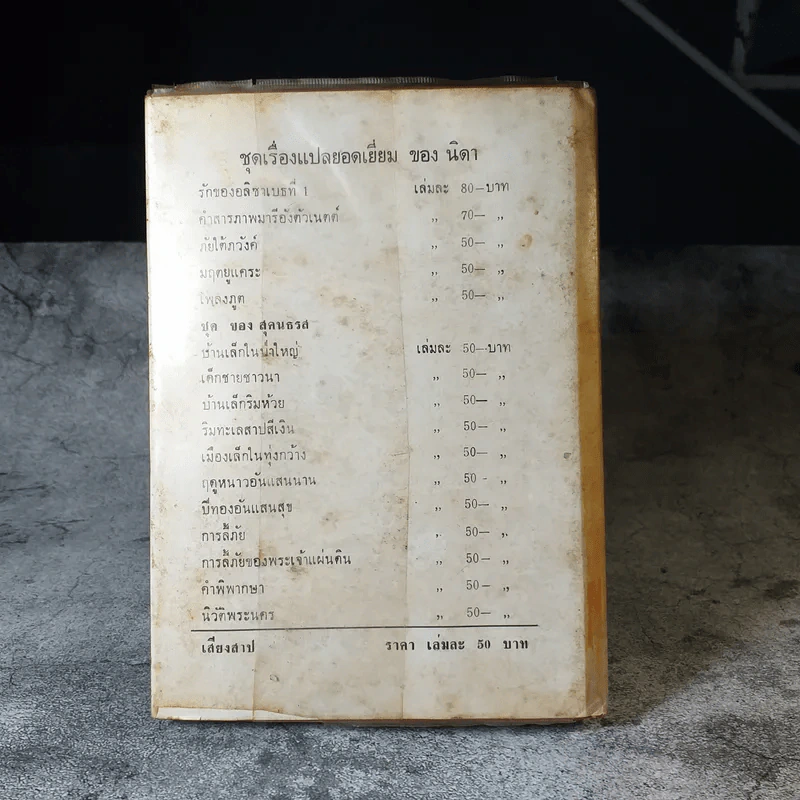 ชุดเรื่องแปลยอดเยี่ยม ของ นิดา
รักของอลิซาเบธที่ 1 เล่มละ 80—บาท
คำสารภาพมารีอังตัวเนตต์ ,, 70— ,,
ภัยใต้ภวังค์ ,, 50— ,,
มฤตยูแคระ ,, 50— ,,
โพลงภูต ,, 50— ,,
ชุด ของ สุคนธรส
บ้านเล็กในป่าใหญ่ เล่มละ 50—บาท
เด็กชายชาวนา ,, 50— ,,
บ้านเล็กริมห้วย ,, 50— ,,
ริมทะเลสาปสีเงิน ,, 50— ,,
เมืองเล็กในทุ่งกว้าง ,, 50— ,,
ฤดูหนาวอันแสนนาน ,, 50 - ,,
ปีทองอันแสนสุข ,, 50— ,,
การลี้ภัย ,, 50— ,,
การลี้ภัยของพระเจ้าแผ่นดิน ,, 50— ,,
คำพิพากษา ,, 50— ,,
นิวัติพระนคร ,, 50— ,,
เสียงสาป ราคา เล่มละ 50 บาท